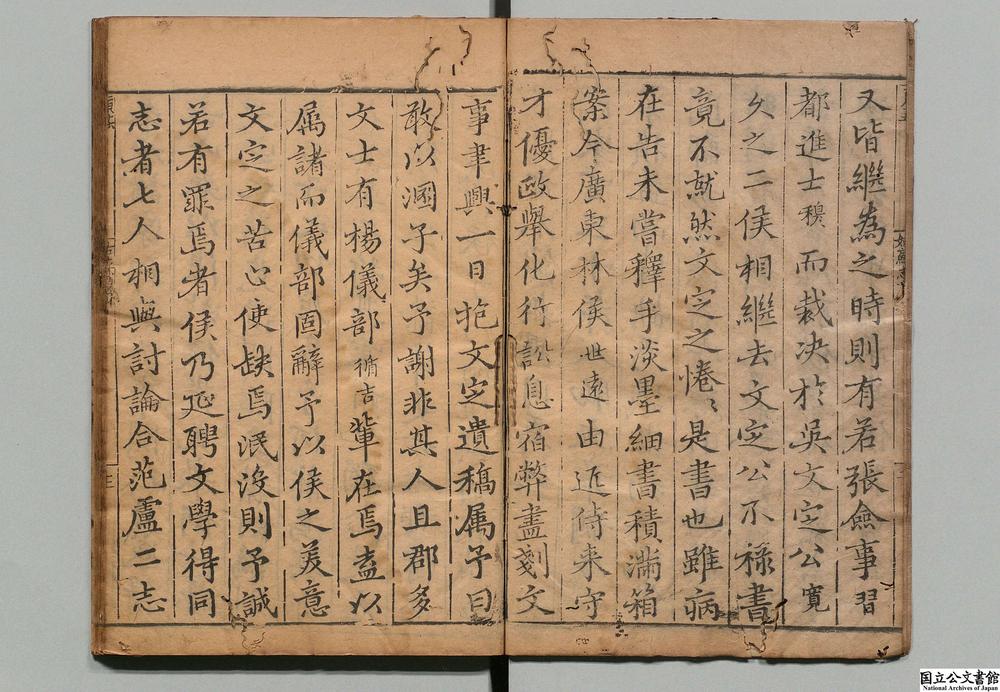 又皆繼為之時則有若張僉事習
都進士穆而裁决於吳文定公寬
乆之二侯相繼去文定公不祿書
竟不就然文定之惓〻是書也雖病
在告未嘗釋手淡墨細書積滿箱
案今廣東林侯世遠由近侍来守
才優政舉化行訟息宿弊盡剗文
事聿興一日抱文定遺稿属予曰
敢以溷子矣予謝非其人且郡多
文士有楊儀部循吉輩在焉盍以
属諸而儀部固辭予以侯之美意
文定之苦心使缺焉泯没則予誠
若有罪焉者侯乃延聘文學得同
志者七人相與討論合范盧二志
国立公文書館
National Archives of Japan